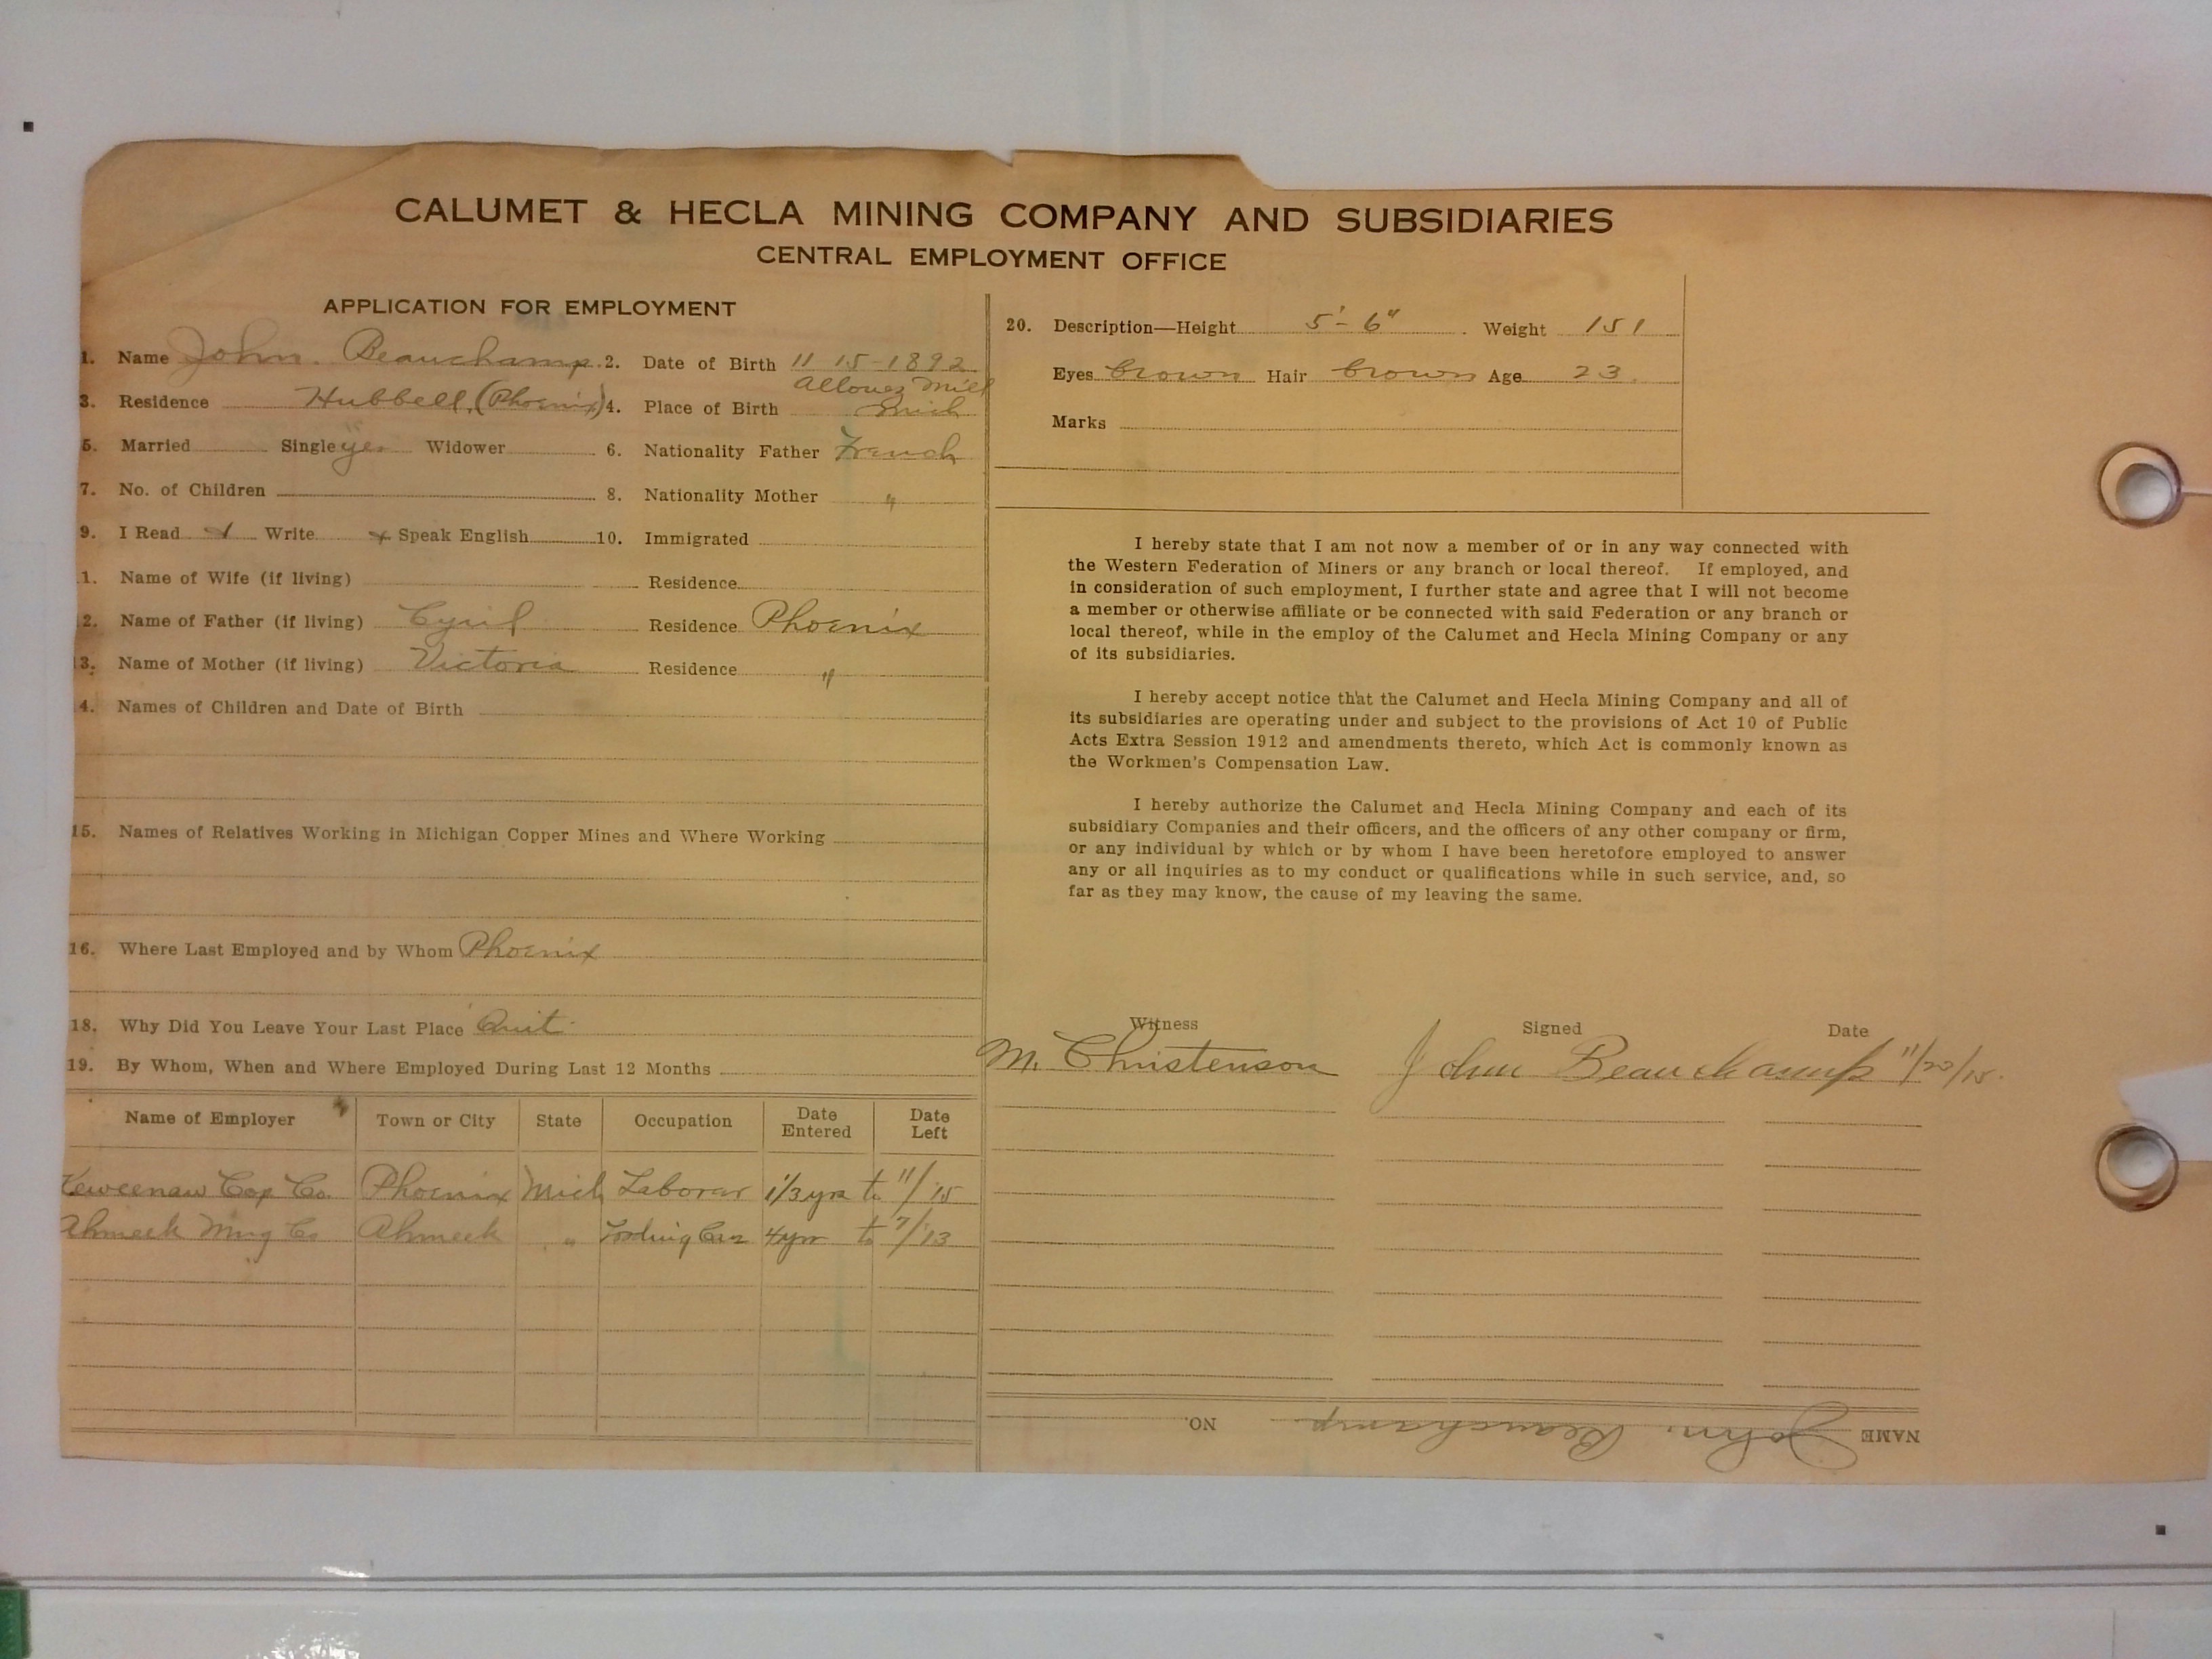 CALUMET & HECLA MINING COMPANY AND SUBSIDIARIES
CENTRAL EMPLOYMENT OFFICE
APPLICATION FOR EMPLOYMENT
1. Name John. Beauchamp 2. Date of Birth 11 15-1892
3. Residence Hubbell, (Phoenix) 4. Place of Birth Allouez Mill Mich
5. Married Single yes Widower 6. Nationality Father French
7. No. of Children 8. Nationality Mother "
9. I Read Write Speak English 10. Immigrated
1. Name of Wife (if living) Residence
2. Name of Father (if living) Cyril Residence Phoenix
3. Name of Mother (if living) Victoria Residence "
4. Names of Children and Date of Birth
15. Names of Relatives Working in Michigan Copper Mines and Where Working
16. Where Last Employed and by Whom Phoenix
18. Why Did You Leave Your Last Place Quit
19. By Whom, When and Where Employed During Last 12 Months
Name of Employer Town or City State Occupation Date Entered Date Left
Keweenaw Cop Co. Phoenix Mich Laborer 1/3 yrs to 11/15
Ahmeek Mng Co Ahmeek " 4yr to 7/13
20. Description—Height 5'-6" Weight 151
Eyes brown Hair brown Age 23.
Marks
I hereby state that I am not now a member of or in any way connected with
the Western Federation of Miners or any branch or local thereof. If employed, and
in consideration of such employment, I further state and agree that I will not become
a member or otherwise affiliate or be connected with said Federation or any branch or
local thereof, while in the employ of the Calumet and Hecla Mining Company or any
of its subsidiaries.
I hereby accept notice that the Calumet and Hecla Mining Company and all of
its subsidiaries are operating under and subject to the provisions of Act 10 of Public
Acts Extra Session 1912 and amendments thereto, which Act is commonly known as
the Workmen's Compensation Law.
I hereby authorize the Calumet and Hecla Mining Company and each of its
subsidiary Companies and their officers, and the officers of any other company or firm,
or any individual by which or by whom I have been heretofore employed to answer
any or all inquiries as to my conduct or qualifications while in such service, and, so
far as they may know, the cause of my leaving the same.
Witness Signed Date
M. Christenson John Beauchamp 11/20/15.
NAME John. Beauchamp NO.